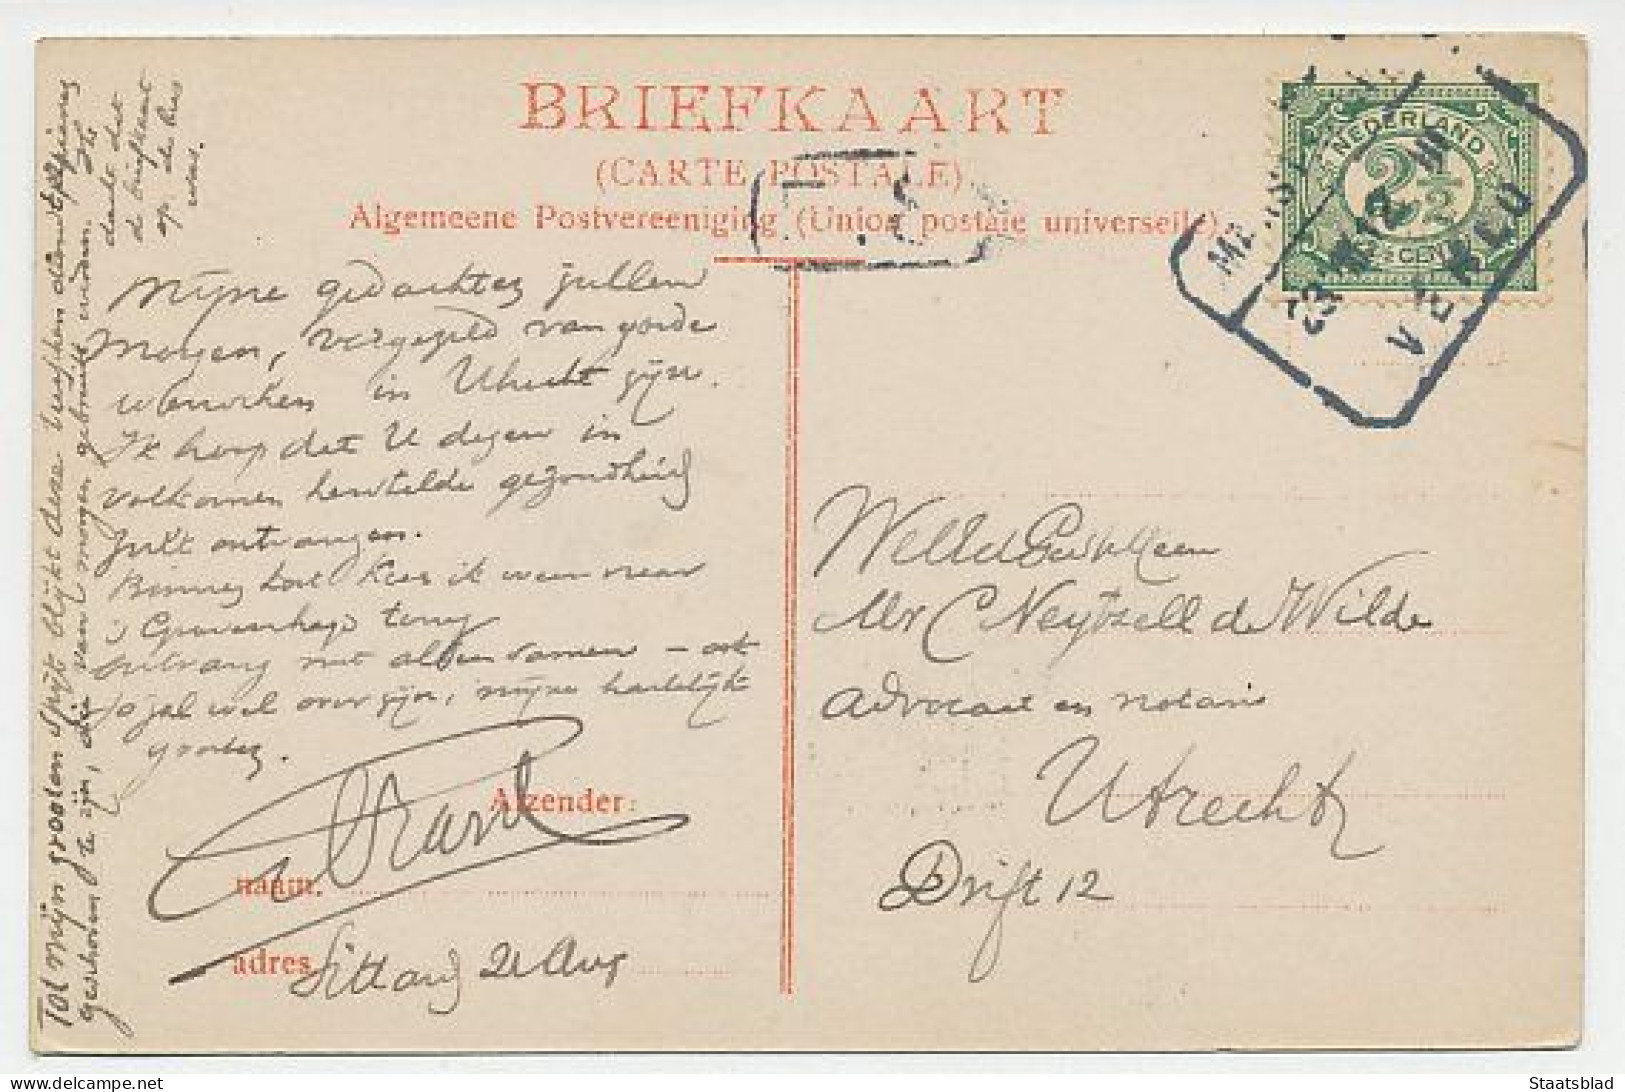 BRIEFKAART
(CARTE POSTALE)
Algemeene Postvereeniging (Union postale universelle)
NEDERLAND
2½
CENT
VENLO
Mijne gedachten zullen
morgen, vergezeld van goede
in Utrecht zijn.
Ik hoop dat U dezen in
volkomen herstelde gezondheid
zult ontvangen.
Binnen kort keer ik weer naar
's Gravenhage terug
ontvang met allen samen
zal wel over zijn, mijne hartelijke
groeten.
Afzender:
naam.
adres Sittard 21 Aug
Tot mijn grooten spijt blijkt deze tusschen
te zijn, die van morgen gebruikt
dacht dat
de briefkaart
op de bus
was.
WelEdGestrHeer
Mr C Neytzell de Wilde
Advocaat en notaris
Utrecht
Drift 12
Staatsblad